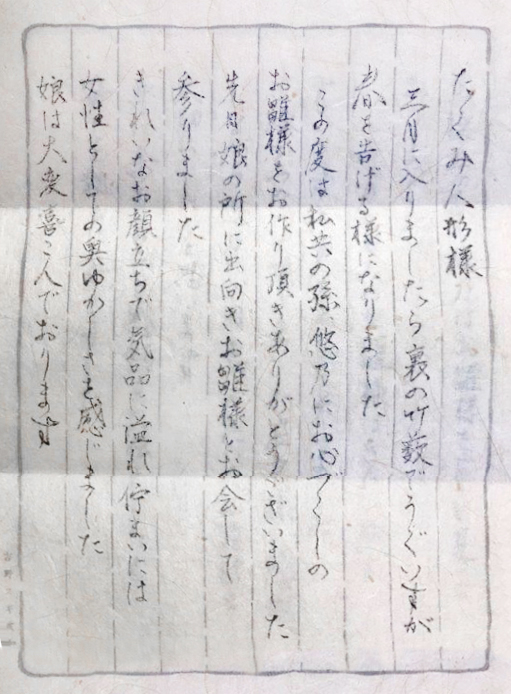 たくみ人形様
三月に入りましたら裏の竹薮でうぐいすが
春を告げる様になりました
この度は私共の孫 悠乃にお心づくしの
お雛様をお作り頂きありがとうございました
先日娘の所に出向きお雛様とお会して
参りました
きれいなお顔立ちで気品に溢れ佇まいには
女性としての奥ゆかしさを感じました
娘は大変喜こんでおります